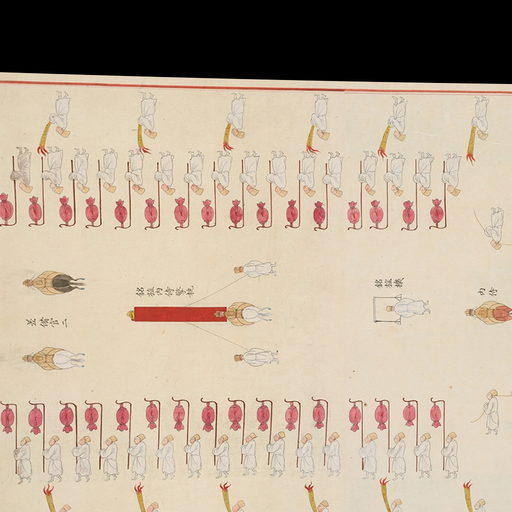 差備官二
銘旌內侍擎執
銘旌機
內侍